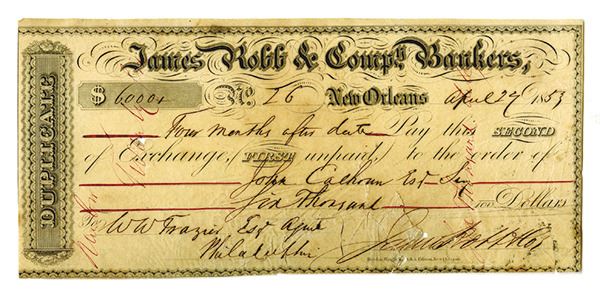 DUPLICATE
James Robb & Compy. Bankers,
$ 6000 No. 26 New Orleans April 27 1853
Four months after date Pay this SECOND
of Exchange, (FIRST unpaid) to the order of
John Calhoun Esq
Six Thousand 100 Dollars
To W W Frazier Esq Agent
Philadelphia James Robb & Co